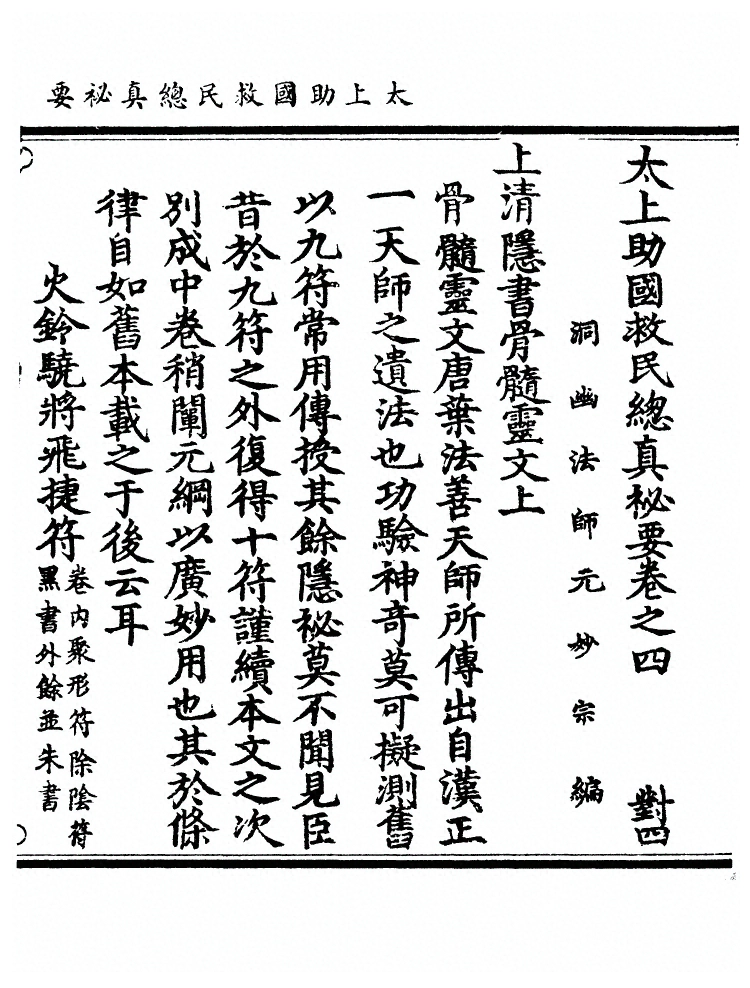 太上助國救民總真祕要
太上助國救民總真祕要卷之四 對四
洞幽法師元妙宗編
上清隱書骨髓靈文上
骨髓靈文唐葉法善天師所傳出自漢正
一天師之遺法也功驗神奇莫可擬測舊
以九符常用傳授其餘隱祕莫不聞見臣
昔於九符之外復得十符謹續本文之次
別成中卷稍闡元綱以廣妙用也其於條
律自如舊本載之于後云耳
火鈴驍將飛捷符 卷內聚形符除陰符
黑書外餘並朱書